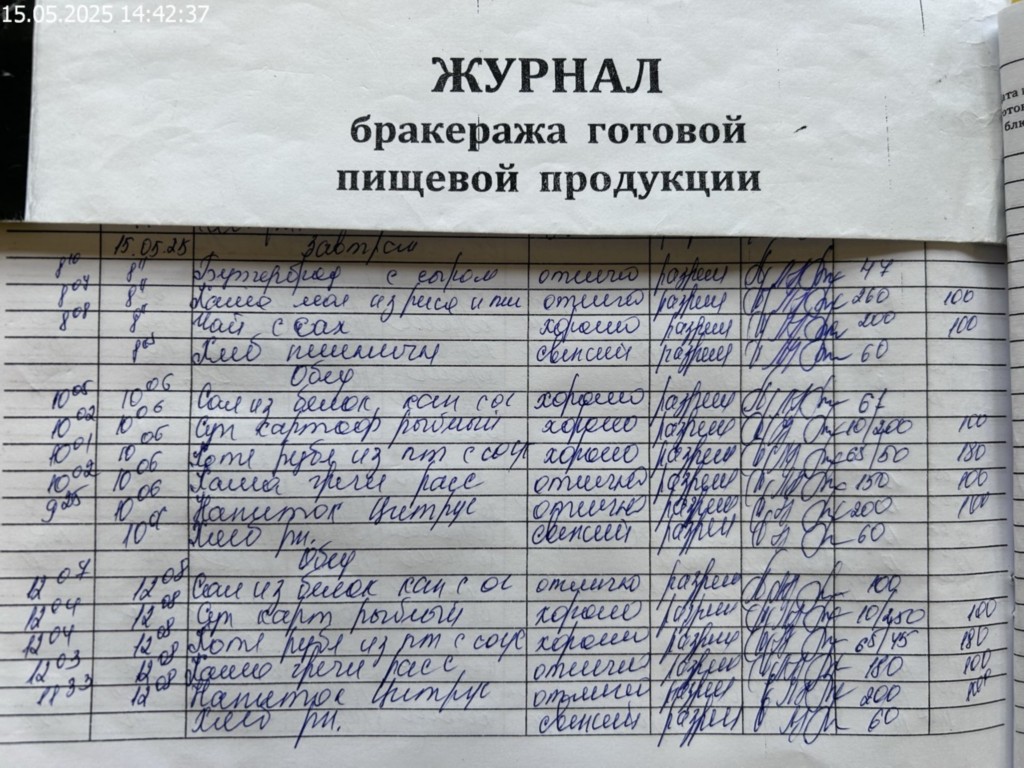 15.05.2025 14:42:37
ЖУРНАЛ
бракеража готовой
пищевой продукции
15.05.25 Завтрак
8 10 8 11 Бутерброд с сыром отлично разреш 47
8 07 8 11 Каша мол из риса и пш отлично разреш 260 100
8 08 Чай с сах хорошо разреш 200 100
Хлеб пшеничн свежий разреш 60
Обед
10 05 10 06 Сал из белок кап с ог хорошо разреш 67
10 02 10 06 Суп картоф рыбный хорошо разреш 10/200 100
10 01 10 06 Котл рубл из пт с соус хорошо разреш 65/50
10 02 10 06 Каша гречн расс отлично разреш 150 100
9 25 10 06 Напиток Цитрус отлично разреш 200 100
10 06 Хлеб рж. свежий разреш 60
Обед
12 07 12 08 Сал из белок кап с ог отлично разреш 100
12 04 12 08 Суп карт рыбный хорошо разреш 10/250 100
12 04 12 08 Котл рубл из пт с соус хорошо разреш 65/45
12 03 12 08 Каша гречн расс отлично разреш 180 100
11 33 12 08 Напиток Цитрус отлично разреш 200 100
Хлеб рж. свежий разреш 60